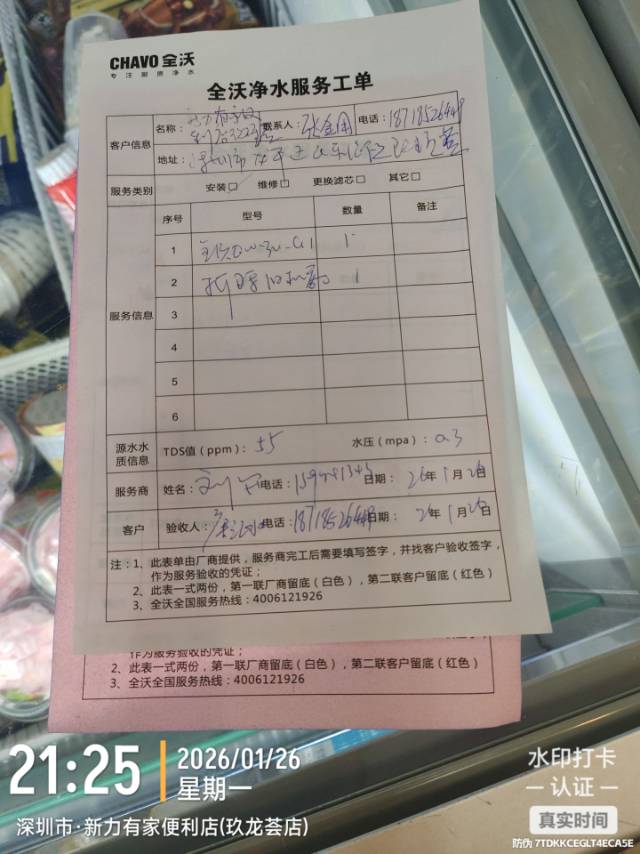 CHAVO 全沃
专注厨房净水
全沃净水服务工单
客户信息 名称： 联系人： 电话：18718526449
地址：深圳市
服务类别 安装□ 维修□ 更换滤芯□ 其它□
服务信息 序号 型号 数量 备注
1 1
2 1
3
4
5
6
源水水质信息 TDS值（ppm）：55 水压（mpa）：0.3
服务商 姓名：刘 电话： 日期：26年1月26日
客户 验收人： 电话：18718526449 日期：26年1月26日
注：1、此表单由厂商提供，服务商完工后需要填写签字，并找客户验收签字，
作为服务验收的凭证；
2、此表一式两份，第一联厂商留底（白色），第二联客户留底（红色）
3、全沃全国服务热线：4006121926
作为服务验收的凭证；
2、此表一式两份，第一联厂商留底（白色），第二联客户留底（红色）
3、全沃全国服务热线：4006121926
21:25 2026/01/26
星期一
深圳市·新力有家便利店(玖龙荟店)
水印打卡
认证
真实时间
防伪 7TDKKCEGLT4ECA5E